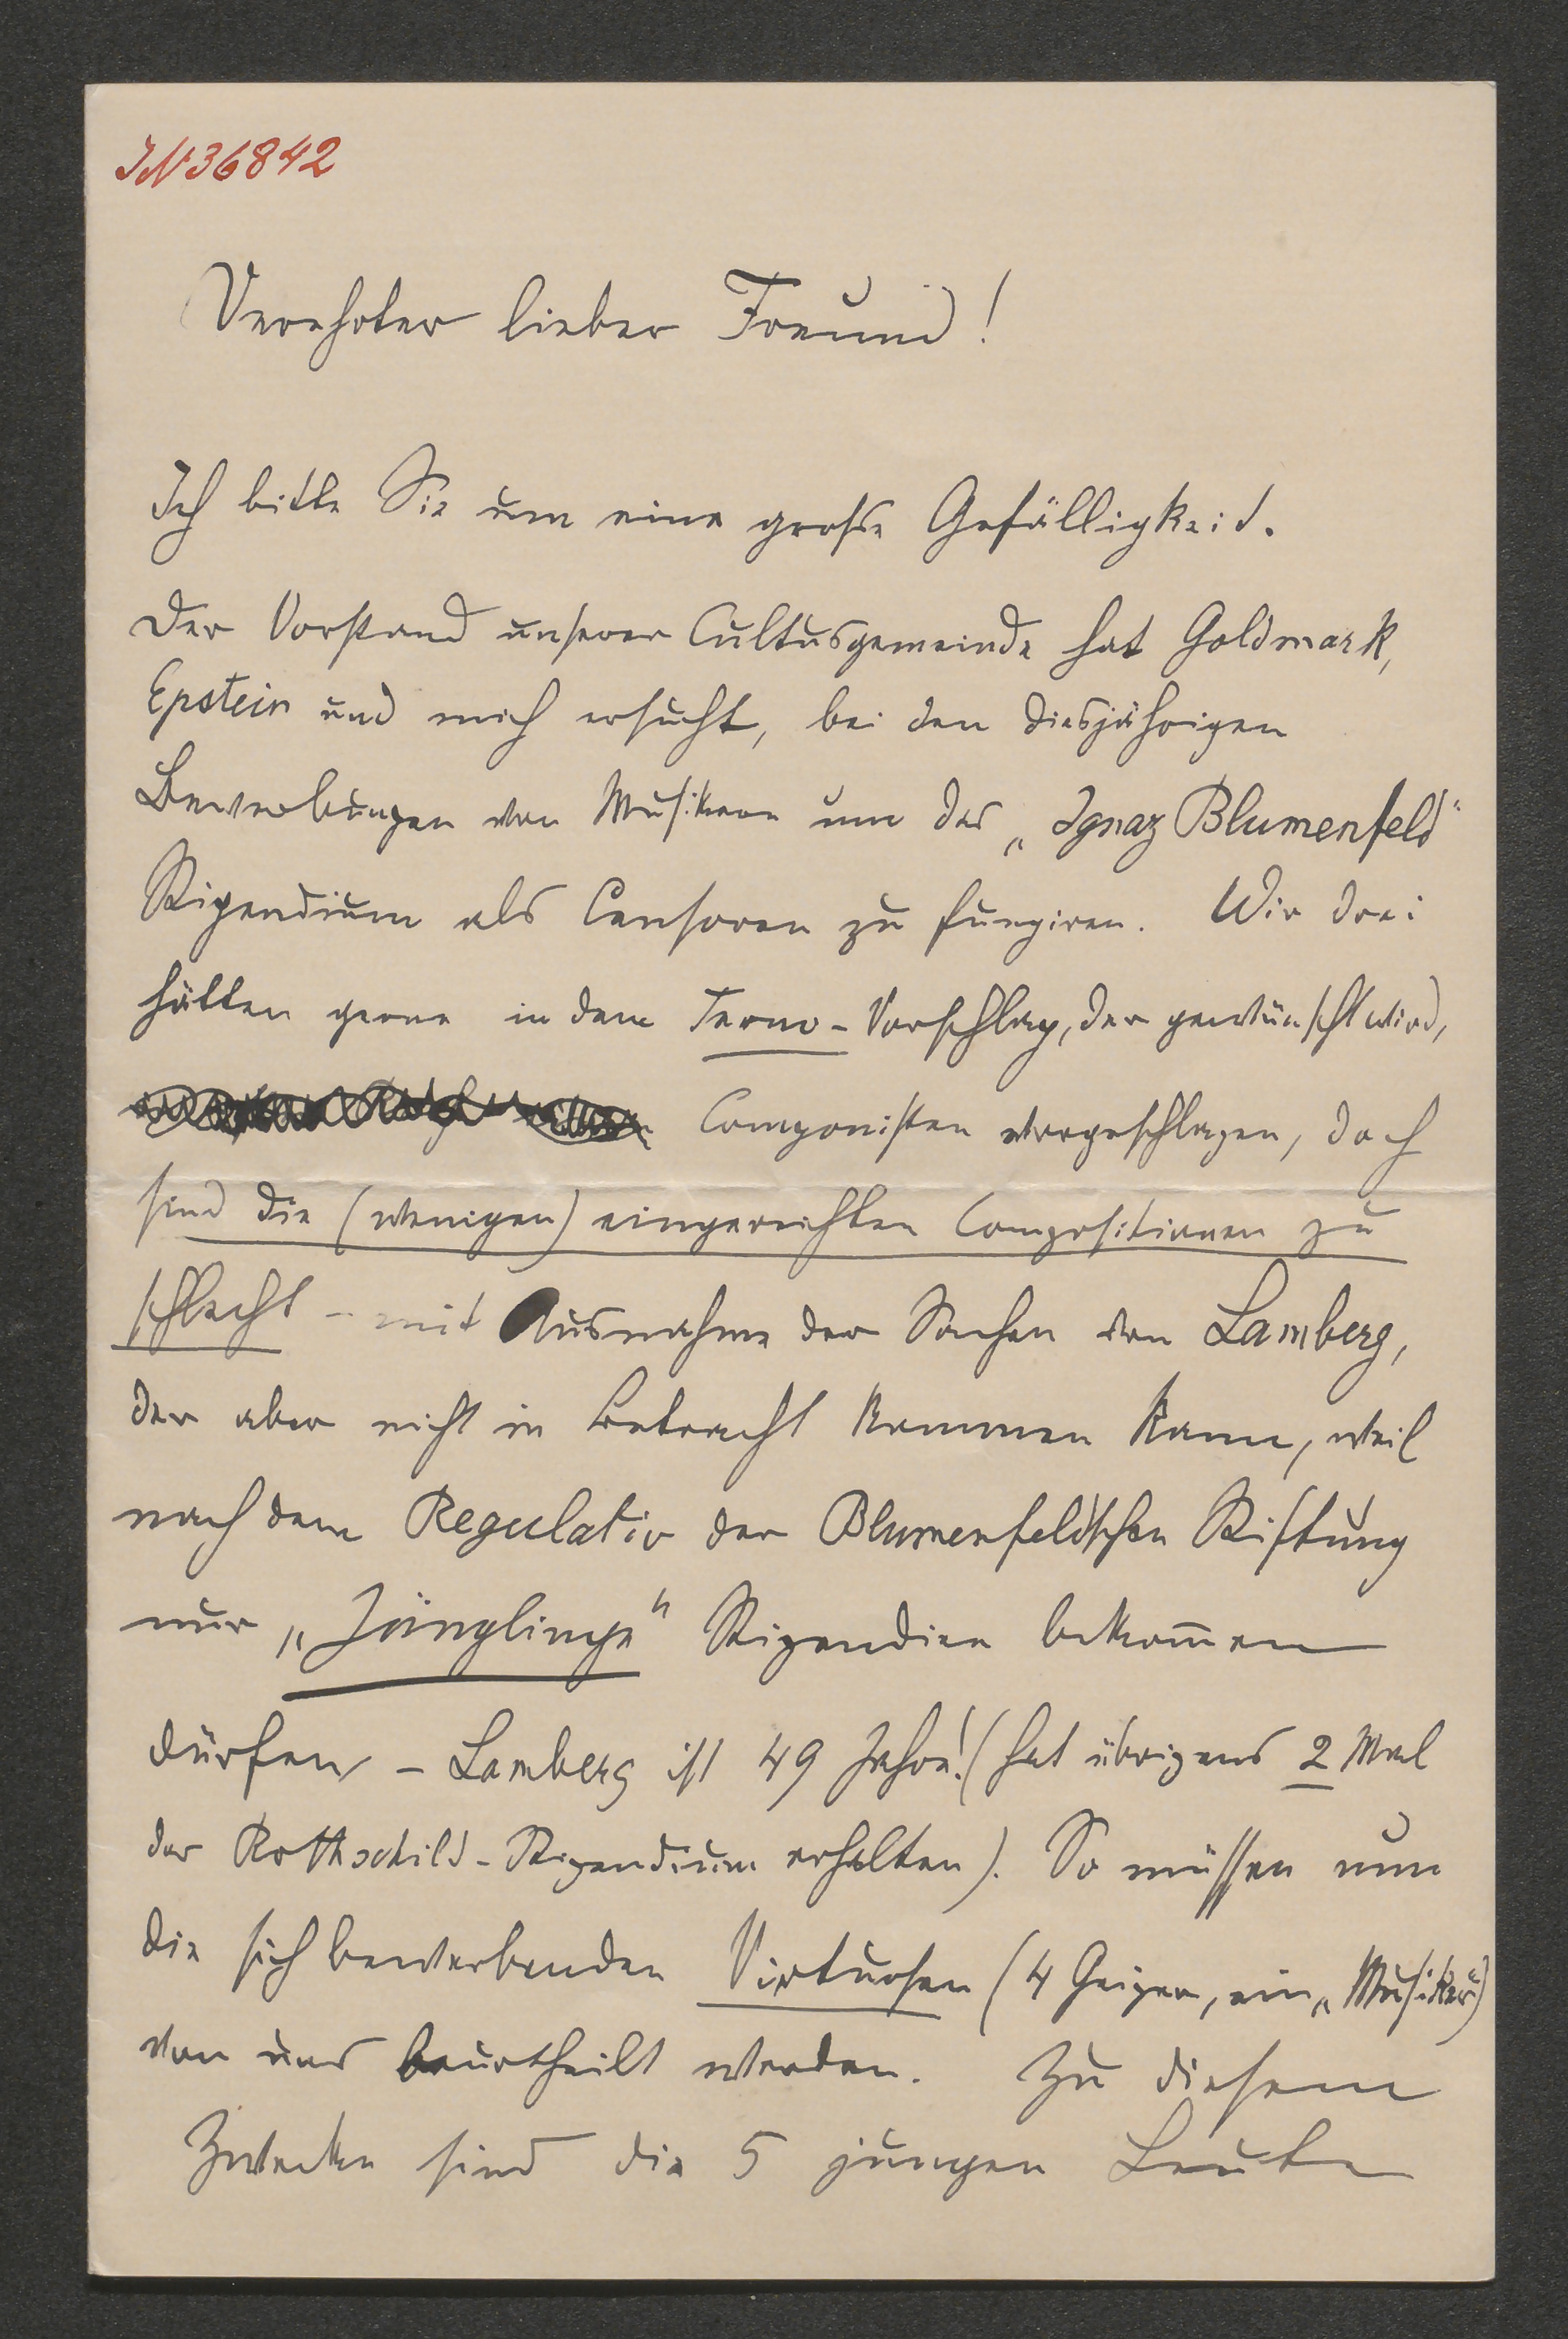 IN 36842
Verehrter lieber Freund!
Ich bitte Sie um eine große Gefälligkeit.
Der Vorstand unserer Cultusgemeinde hat Goldmark,
Epstein und mich ersucht, bei den diesjährigen
Bewerbungen von Musikern um das „Ignaz Blumenfeld“
Stipendium als Censoren zu fungiren. Wir drei
hätten gerne in dem Terno-Vorschlag, der gewünscht wird,
Componisten vorgeschlagen, doch
sind die (wenigen) eingereichten Compositionen zu
schlecht – mit Ausnahme der Sachen von Lamberg,
der aber nicht in Betracht kommen kann, weil
nach dem Regulativ der Blumenfeld'schen Stiftung
nur „Jünglinge“ Stipendien bekom̅en
dürfen – Lamberg ist 49 Jahre! (hat übrigens 2 Mal
das Rothschild-Stipendium erhalten). So müssen nun
die sich bewerbenden Virtuosen (4 Geiger, ein „Musiker“)
von uns beurtheilt werden. Zu diesem
Zwecke sind die 5 jungen Leute